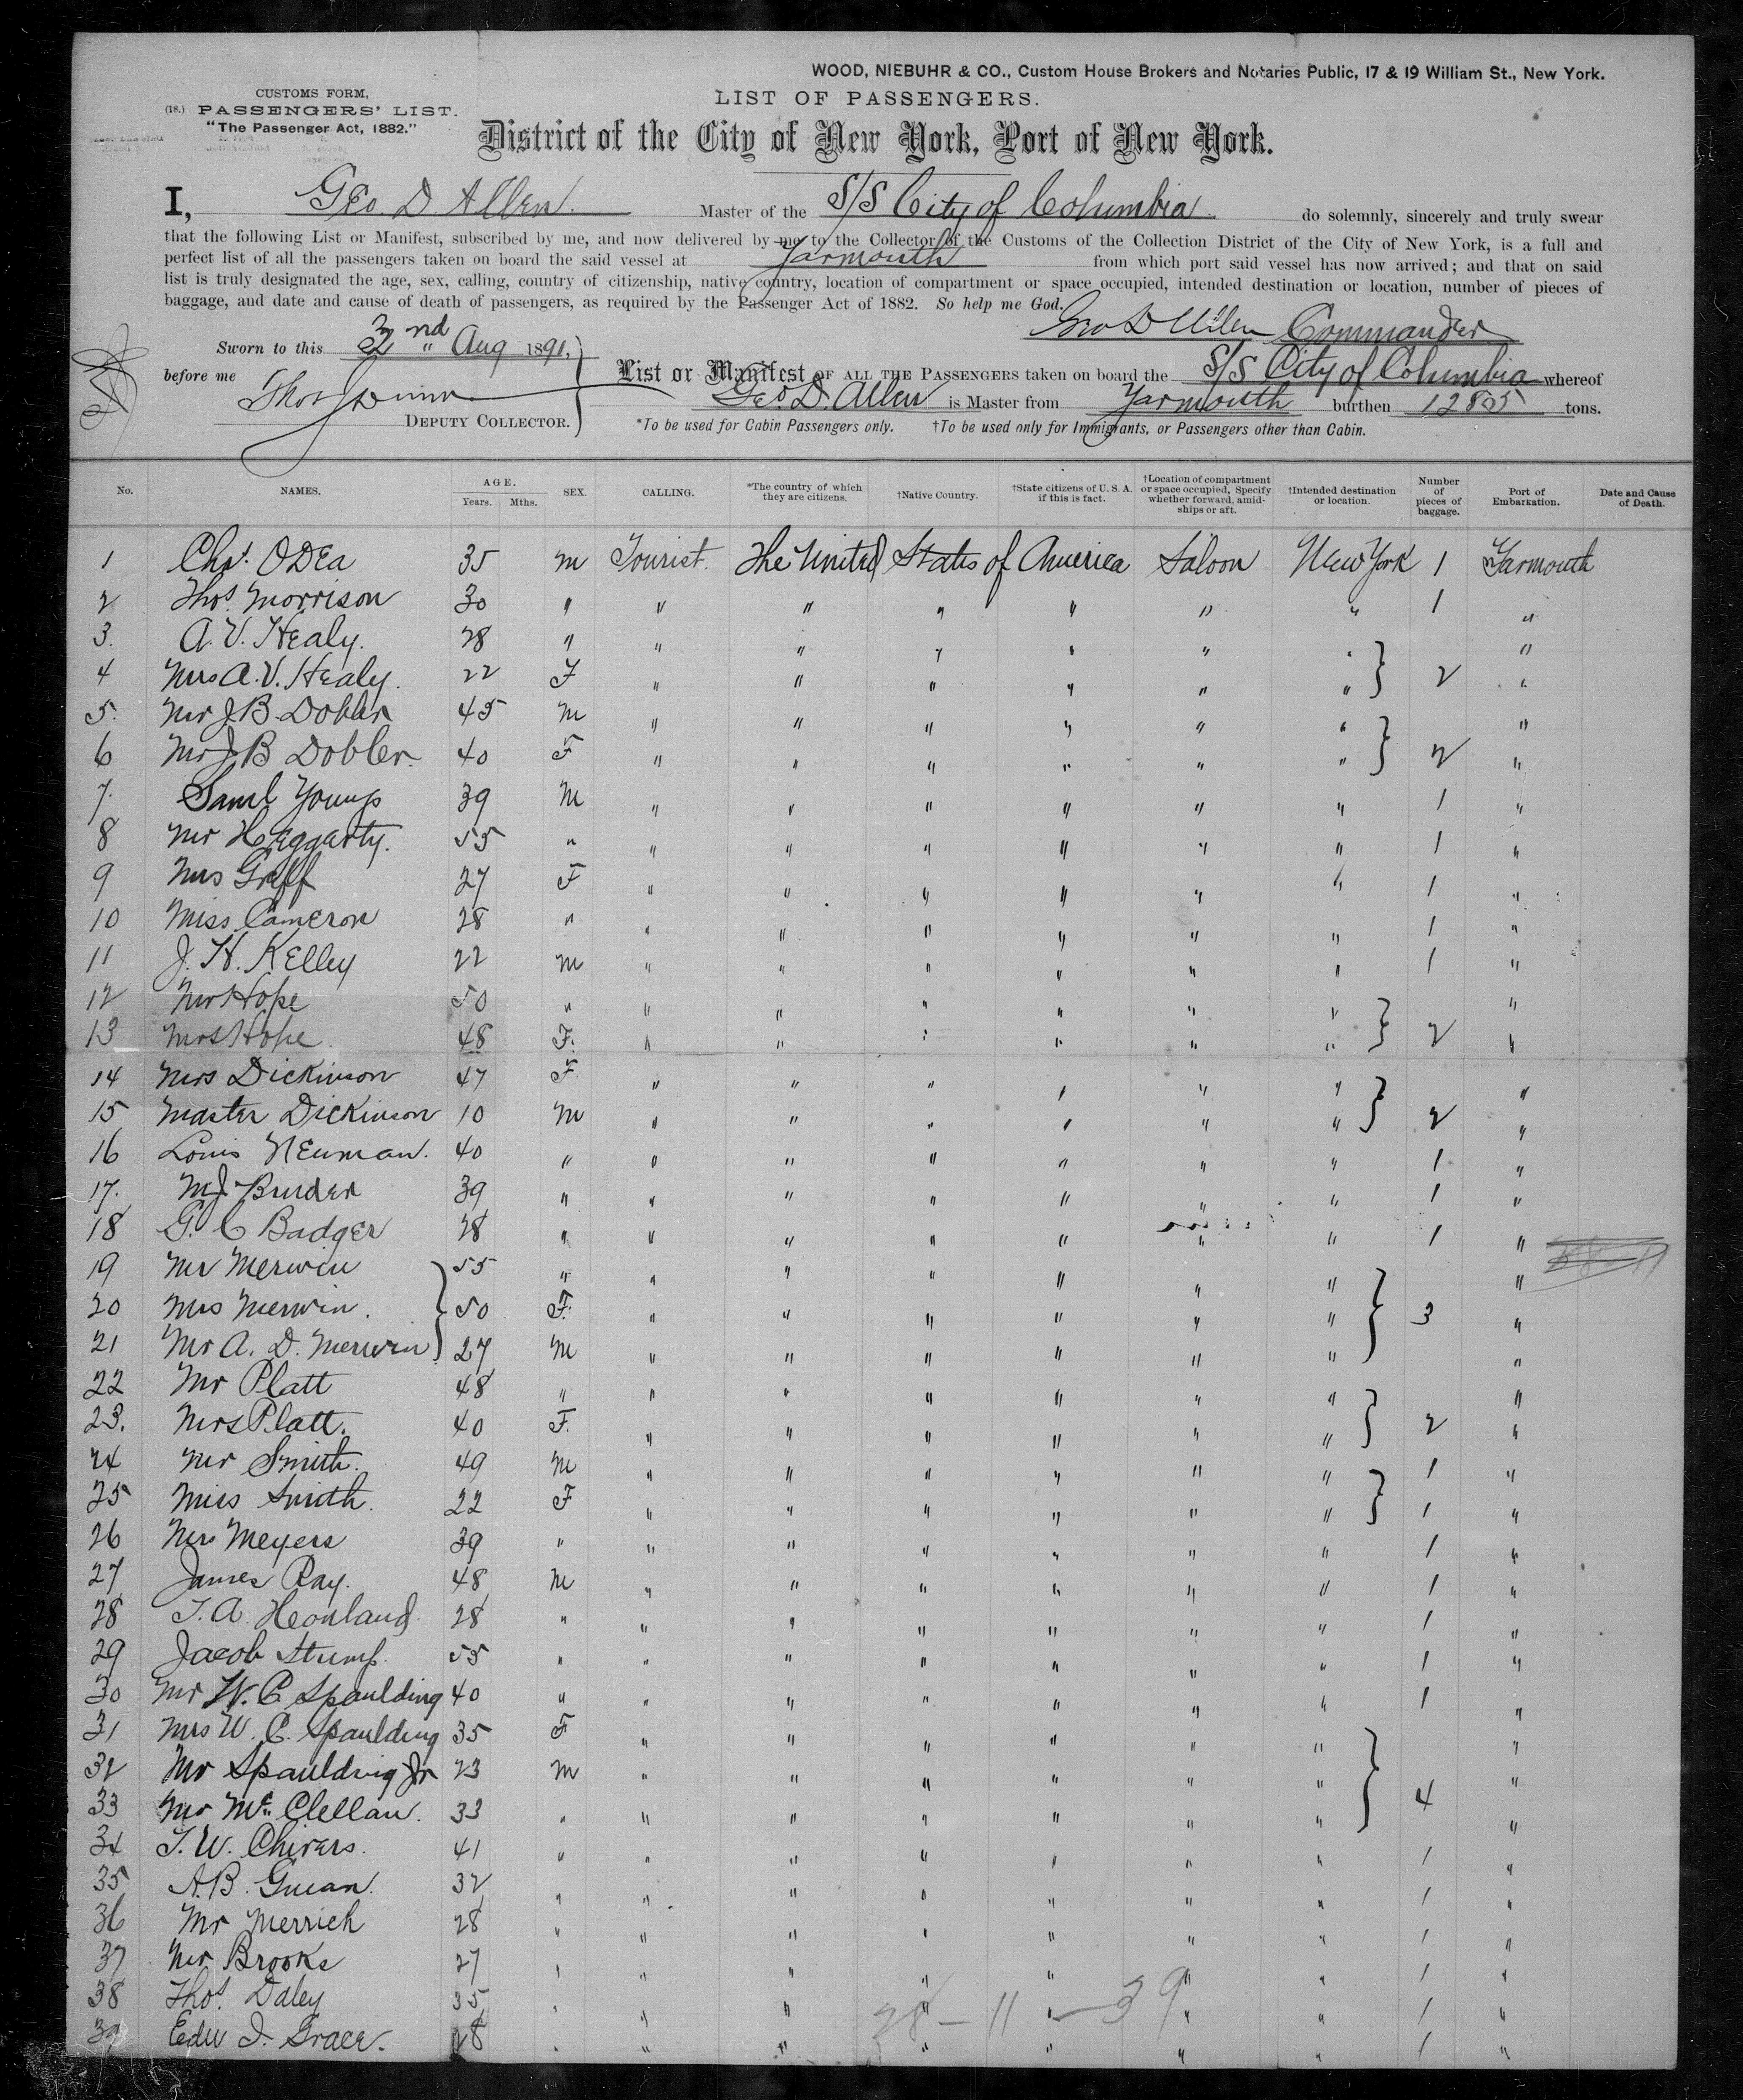 WOOD, NIEBUHR & CO., Custom House Brokers and Notaries Public, 17 & 19 William St., New York.
CUSTOMS FORM,
(18.) PASSENGERS' LIST.
"The Passenger Act, 1882."
LIST OF PASSENGERS.
District of the City of New York, Port of New York.
I, Geo D. Allen Master of the S/S City of Columbia do solemnly, sincerely and truly swear
that the following List or Manifest, subscribed by me, and now delivered by me to the Collector of the Customs of the Collection District of the City of New York, is a full and
perfect list of all the passengers taken on board the said vessel at Yarmouth from which port said vessel has now arrived; and that on said
list is truly designated the age, sex, calling, country of citizenship, native country, location of compartment or space occupied, intended destination or location, number of pieces of
baggage, and date and cause of death of passengers, as required by the Passenger Act of 1882. So help me God.
Geo D Allen Commander
Sworn to this 2nd " Aug 1891.
before me
DEPUTY COLLECTOR.
List or Manifest OF ALL THE PASSENGERS taken on board the S/S City of Columbia whereof
Geo. D. Allen is Master from Yarmouth burthen tons.
*To be used for Cabin Passengers only. †To be used only for Immigrants, or Passengers other than Cabin.
No. NAMES. AGE. Years. Mths. SEX. CALLING. *The country of which they are citizens. †Native Country. †State citizens of U. S. A. if this is fact. †Location of compartment or space occupied, Specify whether forward, amidships or aft. †Intended destination or location. Number of pieces of baggage. Port of Embarkation. Date and Cause of Death.
1 Chas. ODEa 35 m Tourist. The United States of America Saloon New York 1 Yarmouth
2 Thos. Morrison 30 " " " " " " " 1 "
3. A. V. Healy. 28 " " " " " " " "
4 Mrs A. V. Healy. 22 F " " " " " " 2 "
5. Mr J B Dobler 45 M " " " " " " "
6 Mr J B Dobler. 40 F " " " " " " 2 "
7. Saml Young 39 M " " " " " " 1 "
8 Mr Heggarty. 55 " " " " " " " 1 "
9 Mrs Graff 27 F " " " " " " 1 "
10 Miss Cameron 28 " " " " " " " 1 "
11 J. H. Kelley 22 m " " " " " " 1 "
12 Mr Hope 50 " " " " " " " "
13 Mrs Hope. 48 F. " " " " " " 2 "
14 Mrs Dickinson 47 F " " " " " " "
15 Master Dickinson 10 M " " " " " " 2 "
16 Louis Neuman. 40 " " " " " " " 1 "
17. M J Burder 39 " " " " " " " 1 "
18 G. C Badger 28 " " " " " " " 1 "
19 Mr Merwin 55 " " " " " " " "
20 Mrs Merwin. 50 F. " " " " " " 3 "
21 Mr A. D. Merwin 27 M " " " " " " "
22 Mr Platt 48 " " " " " " " "
23. Mrs Platt. 40 F. " " " " " " 2 "
24 Mr Smith. 49 M " " " " " " 1 "
25 Miss Smith. 22 F " " " " " " 1 "
26 Mrs Meyers 39 " " " " " " " 1 "
27 James Ray. 48 M " " " " " " 1 "
28 T. A. 28 " " " " " " " 1 "
29 Jacob Stump. 55 " " " " " " " 1 "
30 Mr W. C Spaulding 40 " " " " " " " 1 "
31 Mrs W. C. Spaulding 35 F " " " " " " "
32 Mr Spaulding Jr 23 m " " " " " " "
33 Mr Mc Clellan. 33 " " " " " " " 4 "
34 T. W. Chivers. 41 " " " " " " " 1 "
35 A. B. 32 " " " " " " " 1 "
36 Mr Merrick 28 " " " " " " " 1 "
37 Mr Brooks 27 " " " " " " " 1 "
38 Thos. Daley 35 " " " " " " " 1 "
39 Edw J. Grace. 28 " " " " " " " 1 "
28 - 11 - 39